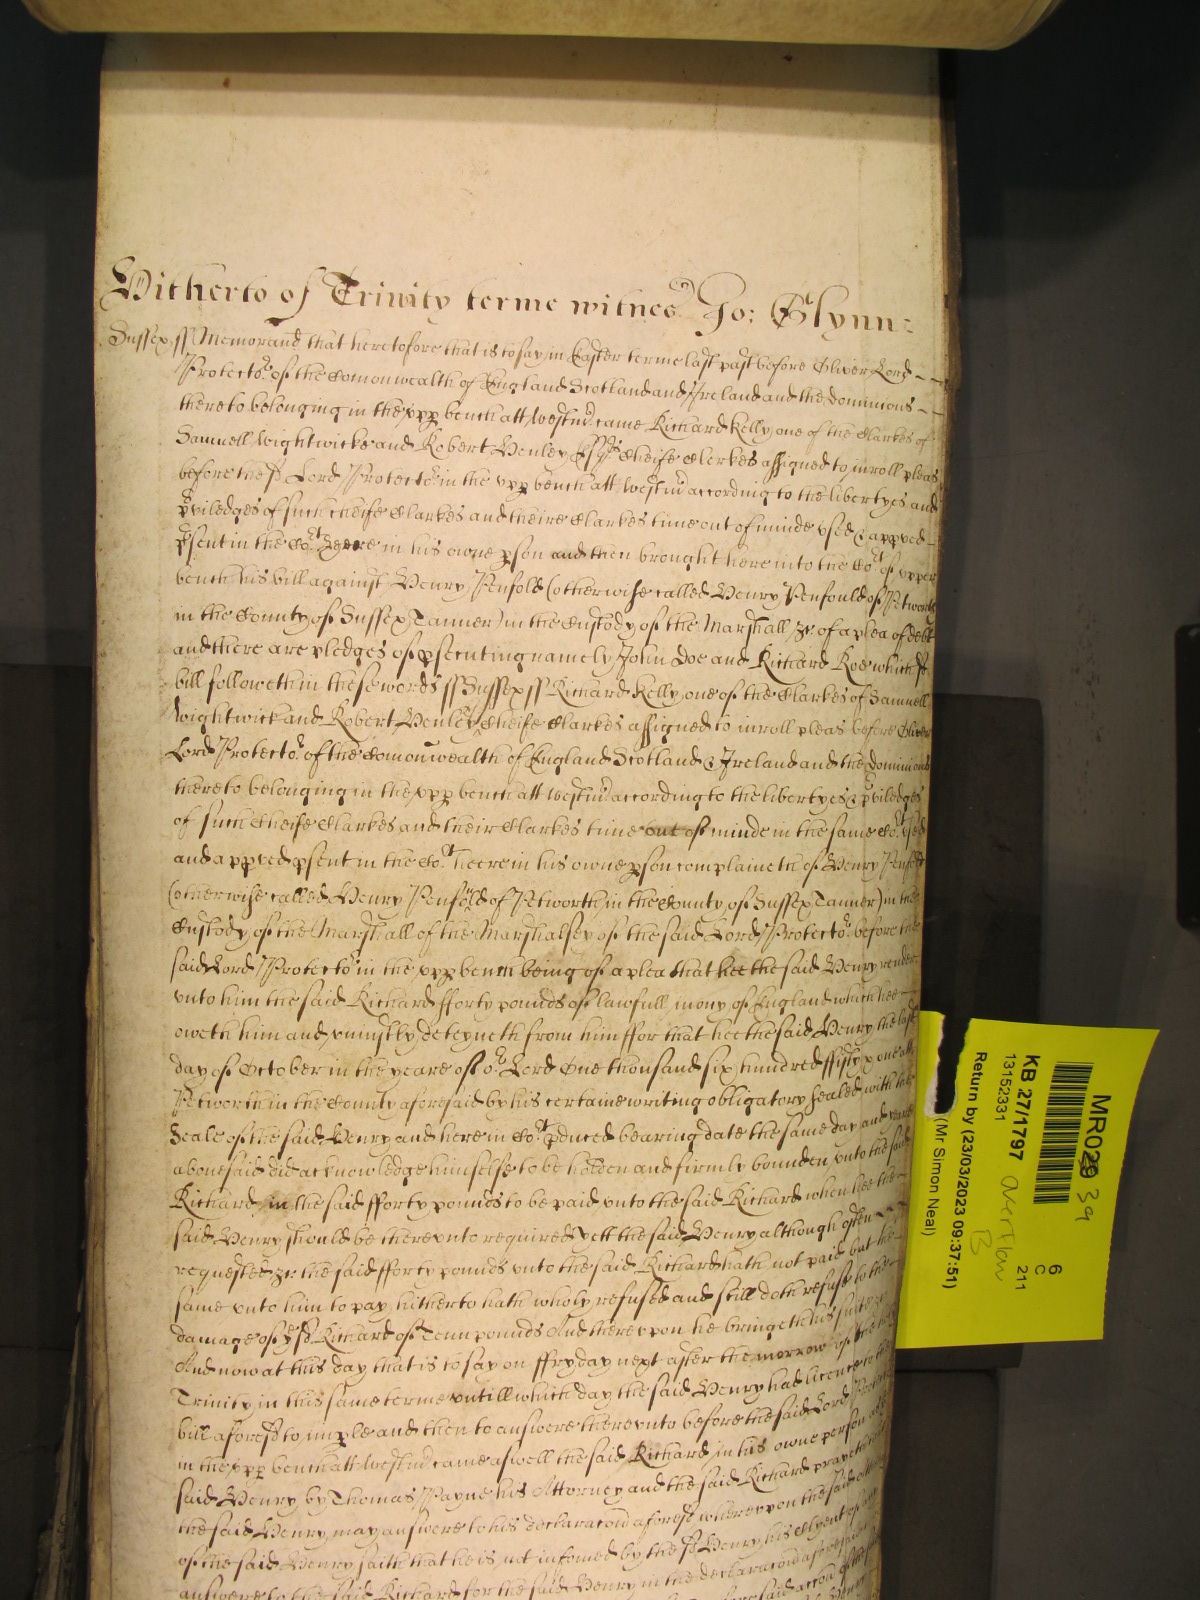 Hitherto of Trinity terme witnes Jo: Glynn:
Sussex ss Memorand that heretofore that is to say in Easter terme last past before Oliver Lord
Protector of the Comonwealth of England Scotland and Ireland and the dominions
thereto belonging in the upp bench att Westm came Richard Kelly one of the Clarkes of
Samuell Wightwicke and Robert Henley Esqrs Cheife Clerkes assigned to inroll pleas
before the sd Lord Protector in the upp bench att Westm according to the libertyes and
priviledges of such cheife Clarkes and theire Clarkes time out of minde used & appved
psent in the Cort heere in his owne pson and then brought here into the Cort of upper
bench his bill against Henry Penfold (otherwise called Henry Penfould of Petworth
in the County of Sussex Tanner) in the Custody of the Marshall &c of a plea of debt
and there are pledges of psecuting namely John Doe and Richard Roe which sd
bill followeth in these words ss Sussex ss Richard Kelly one of the Clarkes of Samuell
Wightwick and Robert Henley Cheife Clarkes assigned to inroll pleas before Oliver
Lord Protector of the Comonwealth of England Scotland & Ireland and the dominions
thereto belonging in the upp bench att Westm according to the libertyes & priviledges
of such Cheife Clarkes and their Clarkes time out of minde in the same Cort used
and appved psent in the Cort heere in his owne pson complaineth of Henry Penfold
(otherwise called Henry Penfould of Petworth in the County of Sussex Tanner) in the
Custody of the Marshall of the Marshalsey of the said Lord Protector before the
said Lord Protector in the upp bench being of a plea that hee the said Henry render
unto him the said Richard fforty pounds of lawfull mony of England which hee
oweth him and uniustly deteyneth from him ffor that hee the said Henry the last
day of October in the yeare of or Lord One thousand six hundred ffifty & one att
Petworth in the County aforesaid by his certaine writing obligatory sealed with the
Seale of the said Henry and here in Cort pduced bearing date the same day and yeare
abovesaid did acknowledge himselfe to be holden and firmly bounden unto the said
Richard in the said fforty pounds to be paid unto the said Richard when hee the
said Henry should be thereunto required yett the said Henry although often
requested &c the said fforty pounds unto the said Richard hath not paid but the
same unto him to pay hitherto hath wholy refused and still doth refuse to the
damage of ye sd Richard of Tenn pounds And thereupon he bringeth his suite &c
And now at this day that is to say on ffryday next after the morrow of the holy
Trinity in this same terme untill which day the said Henry had licence to the
bill aforesd to imple and then to answere thereunto before the said Lord Protector
in the upp bench att Westm came aswell the said Richard in his owne person as the
said Henry by Thomas Payne his Attorney and the said Richard prayeth that
the said Henry may answere to his declaracon aforesd whereupon the said Attorney
of the said Henry saith that he is not infomed by the sd Henry his Clyent of any
answere to the said Richard for the said Henry in the declaracon aforesaid
MR029 39
6
C
211
KB 27/1797
13152331
Overflow
B
Return by (23/03/2023 09:37:51)
(Mr Simon Neal)